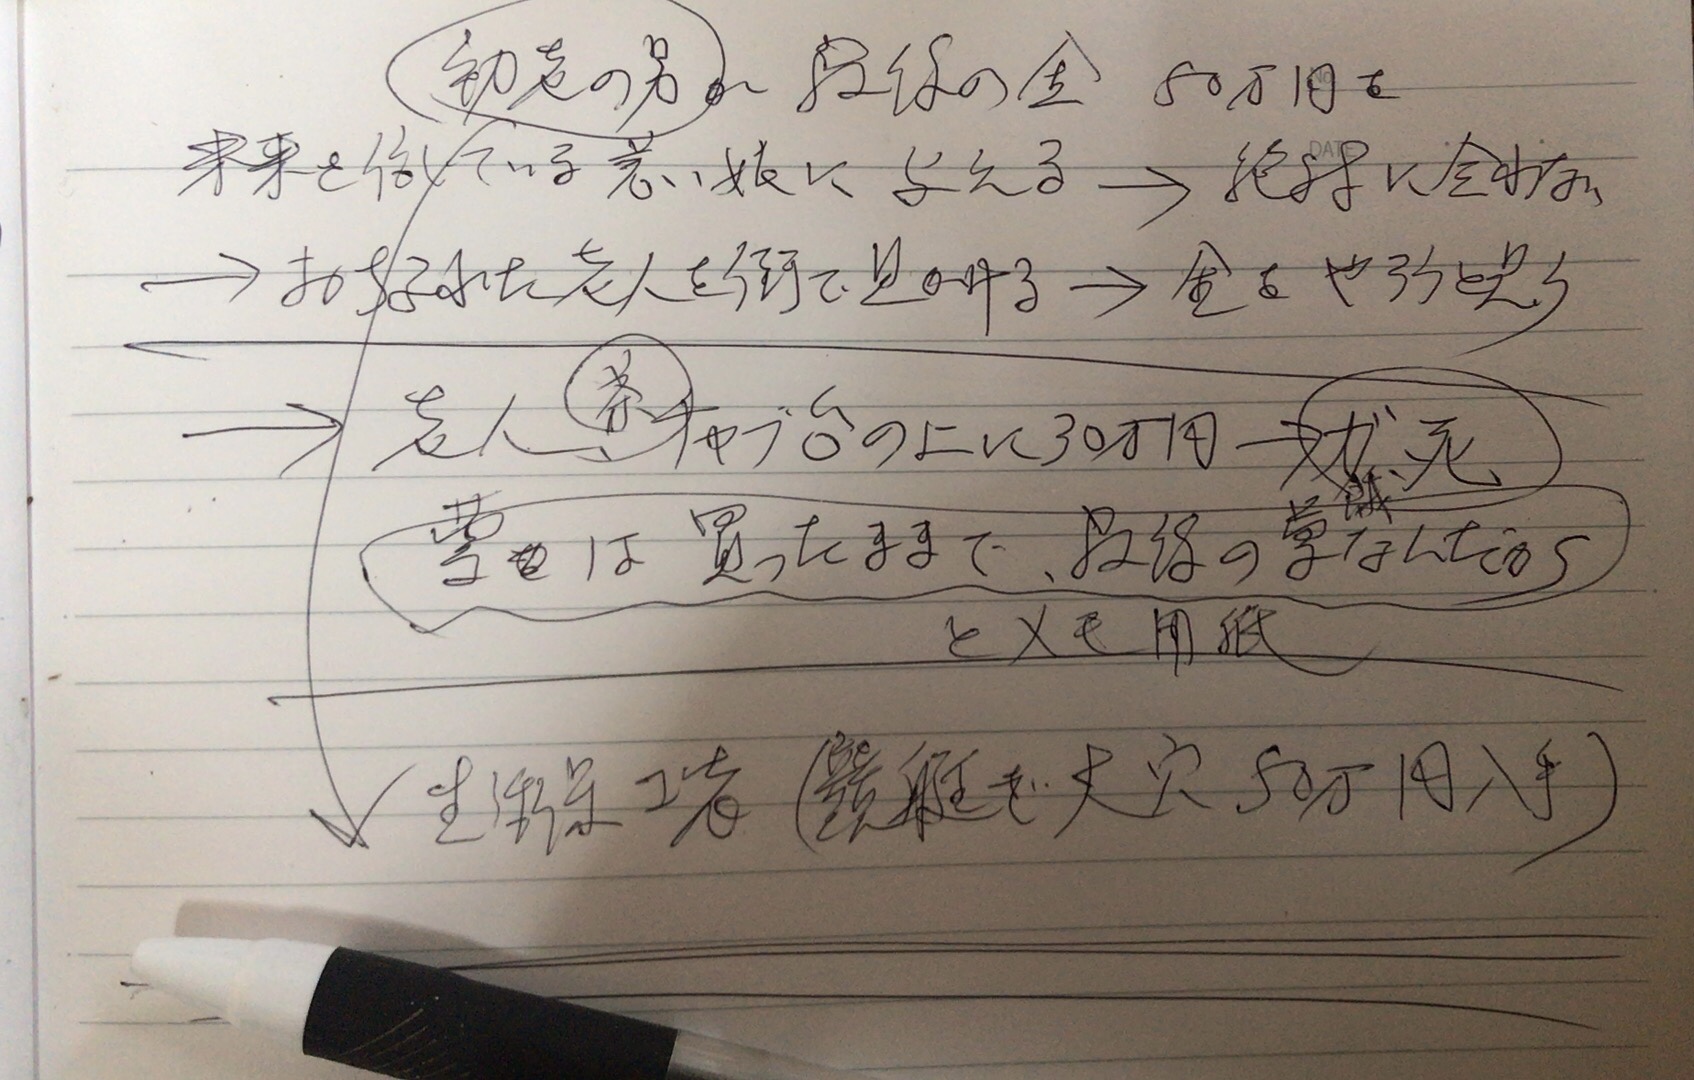 初老の男が 最後の金 50万円を
未来を信じている若い娘に 与える → 絶対に会わない
→ おちぶれた老人を街で見かける → 金をやろうと思う
→ 老人、チャブ台の上に30万円 → ガ死、
は 買ったままで、最後の なんだから
とメモ用紙
生活保ゴ者 (競艇で大穴 50万円入手)
No
DATE